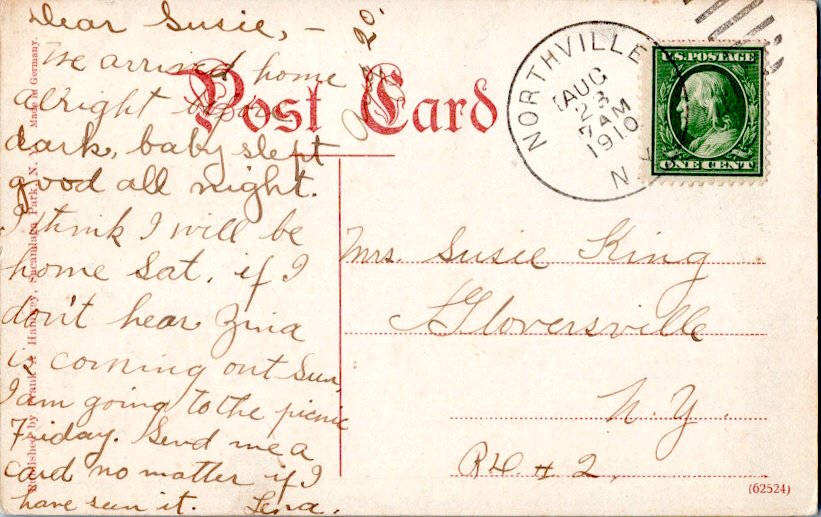 Dear Susie, –
We arrived home
alright before
dark, baby slept
good all night.
I think I will be
home Sat. if I
don't hear Zina
is coming out Sun,
I am going to the picnic
Friday. Send me a
card no matter if I
have seen it. Lena.
20.
Post Card
Published by Frank A. Hanvey, Sacandaga Park, N. Made in Germany.
NORTHVILLE
AUG
23
7 AM
1910
N.Y.
U.S. POSTAGE
ONE CENT
Mrs. Susie King
Gloversville
N. Y.
R.D. # 2.
(62524)